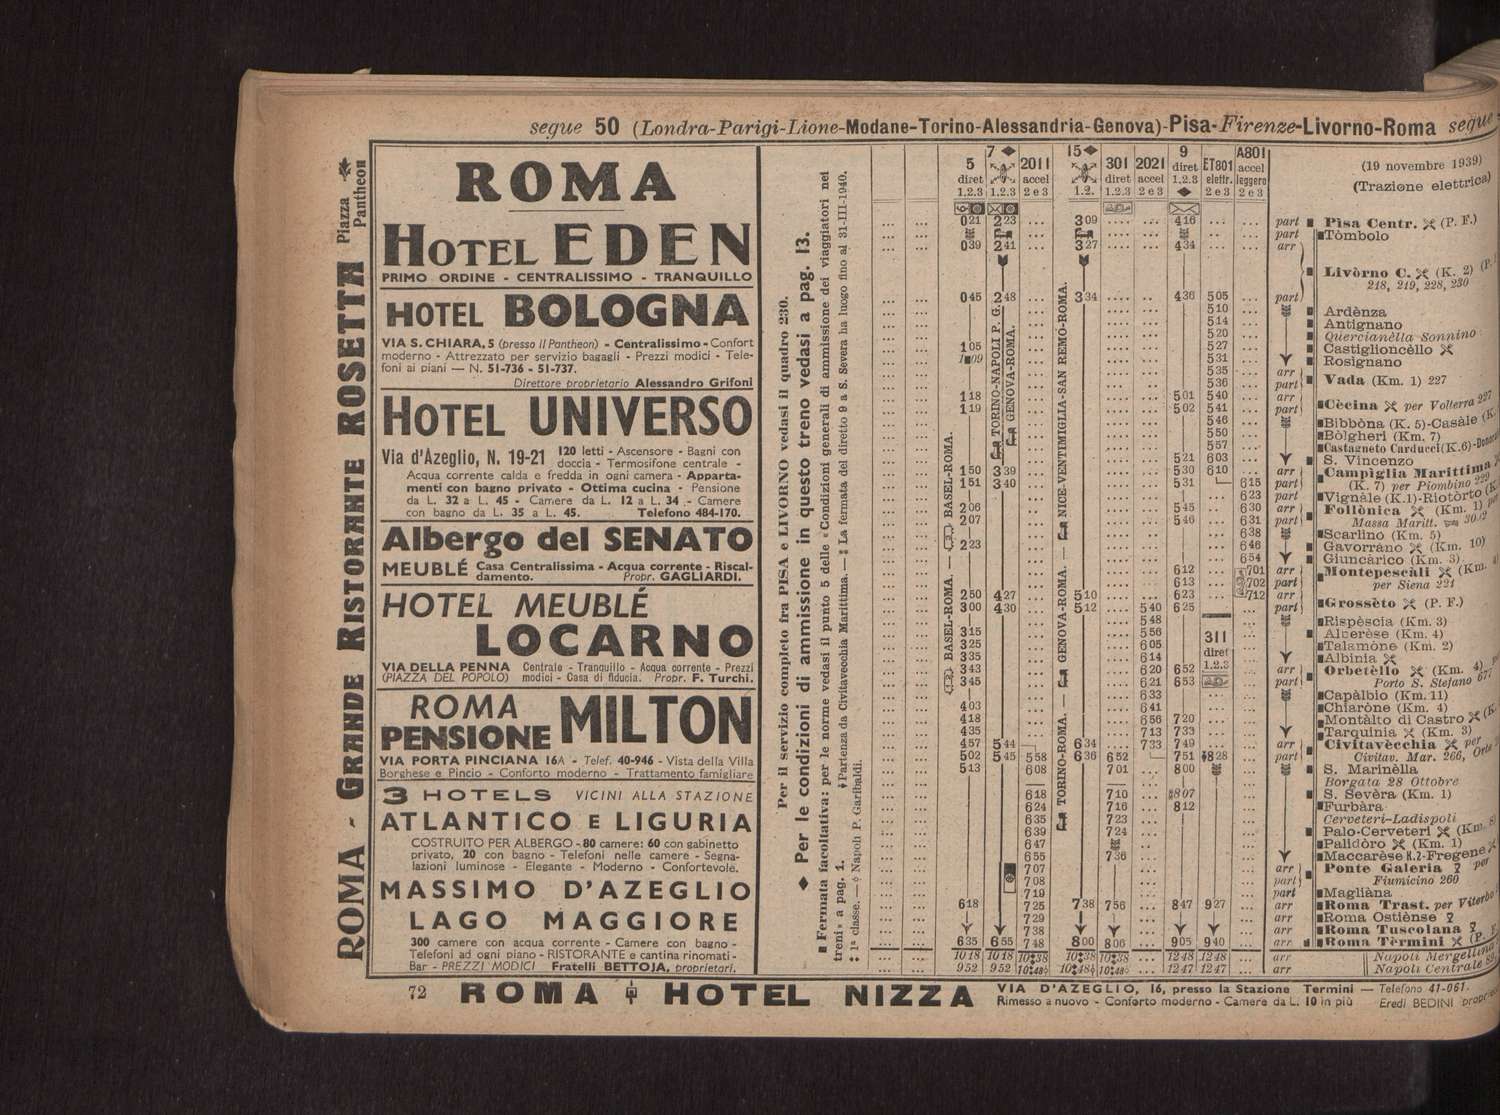 segue 50 (Londra-Parigi-Lione-Modane-Torino-Alessandria-Genova)-Pisa-Firenze-Livorno-Roma segue
ROMA - GRANDE RISTORANTE ROSETTA Piazza Pantheon
ROMA
HOTEL EDEN
PRIMO ORDINE - CENTRALISSIMO - TRANQUILLO
HOTEL BOLOGNA
VIA S. CHIARA, 5 (presso il Pantheon) - Centralissimo - Confort
moderno - Attrezzato per servizio bagagli - Prezzi modici - Tele-
foni ai piani — N. 51-736 - 51-737.
Direttore proprietario Alessandro Grifoni
HOTEL UNIVERSO
Via d'Azeglio, N. 19-21 120 letti - Ascensore - Bagni con
doccia - Termosifone centrale -
Acqua corrente calda e fredda in ogni camera - Apparta-
menti con bagno privato - Ottima cucina - Pensione
da L. 32 a L. 45 - Camere da L. 12 a L. 34 - Camere
con bagno da L. 35 a L. 45. Telefono 484-170.
Albergo del SENATO
MEUBLÉ Casa Centralissima - Acqua corrente - Riscal-
damento. Propr. GAGLIARDI.
HOTEL MEUBLÉ
LOCARNO
VIA DELLA PENNA Centrale - Tranquillo - Acqua corrente - Prezzi
(PIAZZA DEL POPOLO) modici - Casa di fiducia. Propr. F. Turchi.
ROMA
PENSIONE MILTON
VIA PORTA PINCIANA 16A - Telef. 40-946 - Vista della Villa
Borghese e Pincio - Conforto moderno - Trattamento famigliare
3 HOTELS VICINI ALLA STAZIONE
ATLANTICO E LIGURIA
COSTRUITO PER ALBERGO - 80 camere: 60 con gabinetto
privato, 20 con bagno - Telefoni nelle camere - Segna-
lazioni luminose - Elegante - Moderno - Confortevole.
MASSIMO D'AZEGLIO
LAGO MAGGIORE
300 camere con acqua corrente - Camere con bagno -
Telefoni ad ogni piano - RISTORANTE e cantina rinomati -
Bar - PREZZI MODICI Fratelli BETTOJA, proprietari.
Per il servizio completo fra PISA e LIVORNO vedasi il quadro 230.
◆ Per le condizioni di ammissione in questo treno vedasi a pag. 13.
■ Fermata facoltativa: per le norme vedasi il punto 5 delle «Condizioni generali di ammissione dei viaggiatori nei
treni» a pag. 1. ‡ Partenza da Civitavecchia Marittima. — La fermata del diretto 9 a S. Severa ha luogo fino al 31-III-1940.
1ª classe. — Napoli P. Garibaldi.
5 diret 1.2.3
7 ◆ 1.2.3
2011 accel 2 e 3
15 ◆ 1.2.
301 diret 1.2.3
2021 accel 2 e 3
9 diret 1.2.3 ◆
ET801 elettr. 2 e 3
A801 accel leggero 2 e 3
(19 novembre 1939)
(Trazione elettrica)
0 21 2 23 ... 3 09 .... ... 4 16 ... ... part Pisa Centr. (P. F.)
part Tòmbolo
0 39 2 41 ... 3 27 .... ... 4 34 ... ... arr
Livòrno C. (K. 2)
218, 219, 228, 230
0 45 2 48 ... 3 34 .... ... 4 36 5 05 ... part
5 10 Ardènza
5 14 Antignano
5 20 Quercianèlla Sonnino
1 05 5 27 Castiglioncèllo
1 09 5 31 Rosignano
5 35 arr
5 36 part Vada (Km. 1) 227
1 18 5 01 5 40 arr
1 19 5 02 5 41 part Cècina per Volterra 227
5 46 Bibbòna (K. 5)-Casàle
5 50 Bòlgheri (Km. 7)
5 57 Castagneto Carducci (K.6)
5 21 6 03 S. Vincenzo
1 50 3 39 5 30 6 10 arr Campiglia Marittima
1 51 3 40 5 31 6 15 part (K. 7) per Piombino 229
6 23 part Vignàle (K.1)-Riotòrto
2 06 5 45 6 30 arr Follònica (Km. 1)
2 07 5 46 6 31 part Massa Maritt.
6 38 Scarlino (Km. 5)
2 23 6 46 Gavorràno (Km. 10)
6 54 Giuncàrico (Km. 3)
6 12 7 01 arr Montepescàli (Km.
6 13 7 02 part per Siena 221
2 50 4 27 5 10 6 23 7 12 arr
3 00 4 30 5 12 5 40 6 25 part Grossèto (P. F.)
5 48 Rispèscia (Km. 3)
3 15 5 56 Alberèse (Km. 4)
3 25 6 05 Talamòne (Km. 2)
3 35 6 14 Albinia
3 43 6 20 6 52 arr Orbetèllo (Km. 4)
3 45 6 21 6 53 part Porto S. Stefano 677
6 33 Capàlbio (Km. 11)
4 03 6 41 Chiaròne (Km. 4)
4 18 6 56 7 20 Montàlto di Castro
4 35 7 13 7 33 Tarquinia (Km. 3)
4 57 5 44 6 34 7 33 7 49 arr Civitavècchia per
5 02 5 45 5 58 6 36 6 52 7 51 ‡8 28 part Civitav. Mar. 266, Orte
5 13 6 08 7 01 8 00 S. Marinèlla
Borgata 28 Ottobre
6 18 7 10 8 07 S. Sevèra (Km. 1)
6 24 7 16 8 12 Furbàra
6 35 7 23 Cerveteri-Ladispoli
6 39 7 24 Palo-Cerveteri
6 47 Palidòro (Km. 1)
6 55 7 36 Maccarèse K.2-Fregene
7 07 arr Ponte Galeria per
7 08 part Fiumicino 260
7 19 part Magliàna
6 18 7 25 7 38 7 56 8 47 9 27 arr Roma Trast. per Viterbo
7 29 arr Roma Ostiènse
7 38 arr Roma Tuscolana
6 35 6 55 7 48 8 00 8 06 9 05 9 40 arr Roma Tèrmini
10 18 10 18 10 38 10 38 10 38 12 48 12 48 arr Napoli Mergellina
9 52 9 52 10 48 10 48 10 48 12 47 12 47 arr Napoli Centrale
BASEL-ROMA. — BASEL-ROMA.
TORINO-NAPOLI P. G.
GENOVA-ROMA.
TORINO-ROMA. — GENOVA-ROMA. — NICE-VENTIMIGLIA-SAN REMO-ROMA.
311
diret
1.2.3
72 ROMA HOTEL NIZZA VIA D'AZEGLIO, 16, presso la Stazione Termini — Telefono 41-061.
Rimesso a nuovo - Conforto moderno - Camere da L. 10 in più Eredi BEDINI